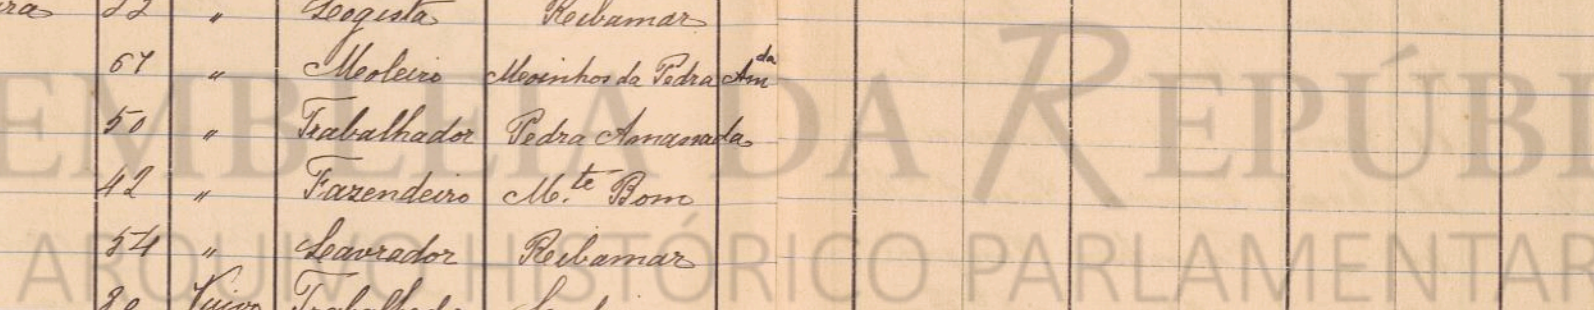 ra 22 " Logista Reibamar
67 " Moleiro Moinhos da Pedra Am da
50 " Trabalhador Pedra Amassada
42 " Fazendeiro M.te Bom
54 " Lavrador Reibamar
Viuvo
EMBLEIA DA REPÚBLI
ARQUIVO HISTÓRICO PARLAMENTAR